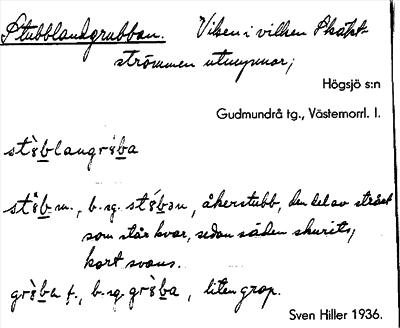 Stubblandgrubban. Viken i vilken Skäkt-
strömmen utmynnar;
Högsjö s:n
Gudmundrå tg., Västernorrl. l.
m., b. sg. åkerstubb, den del av strået
som står kvar, sedan säden skurits,
kort svans.
f., b. sg. liten grop.
Sven Hiller 1936.